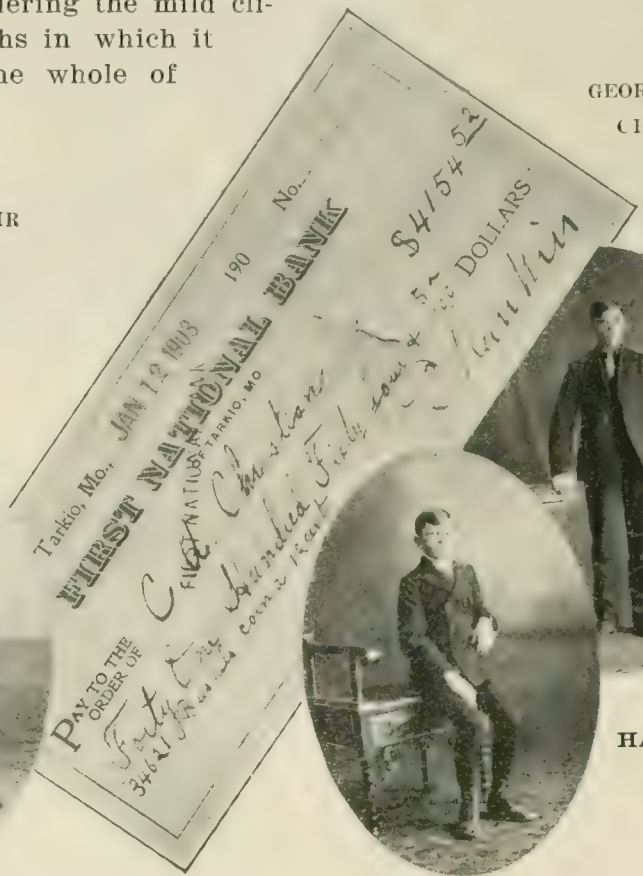 dering the mild cli-
hs in which it
he whole of
GEOR
CI
IR
Tarkio, Mo., JAN 12 1903 190 No....
FIRST NATIONAL BANK
OF TARKIO, MO
PAY TO THE
ORDER OF C. A. Christian $4154 52
Forty One Hundred Fifty four & 52/100 DOLLARS
34621 corn
Rankin
HA